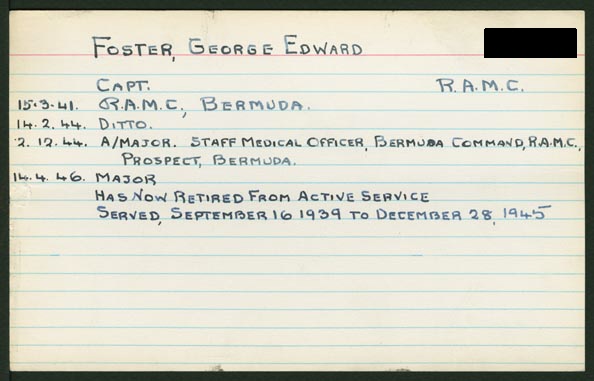 FOSTER, GEORGE EDWARD
CAPT. R.A.M.C.
15.3.41. R.A.M.C, BERMUDA.
14.2.44. DITTO.
2.12.44. A/MAJOR. STAFF MEDICAL OFFICER, BERMUDA COMMAND, R.A.M.C.,
PROSPECT, BERMUDA.
14.4.46. MAJOR
HAS NOW RETIRED FROM ACTIVE SERVICE
SERVED, SEPTEMBER 16 1939 TO DECEMBER 28, 1945